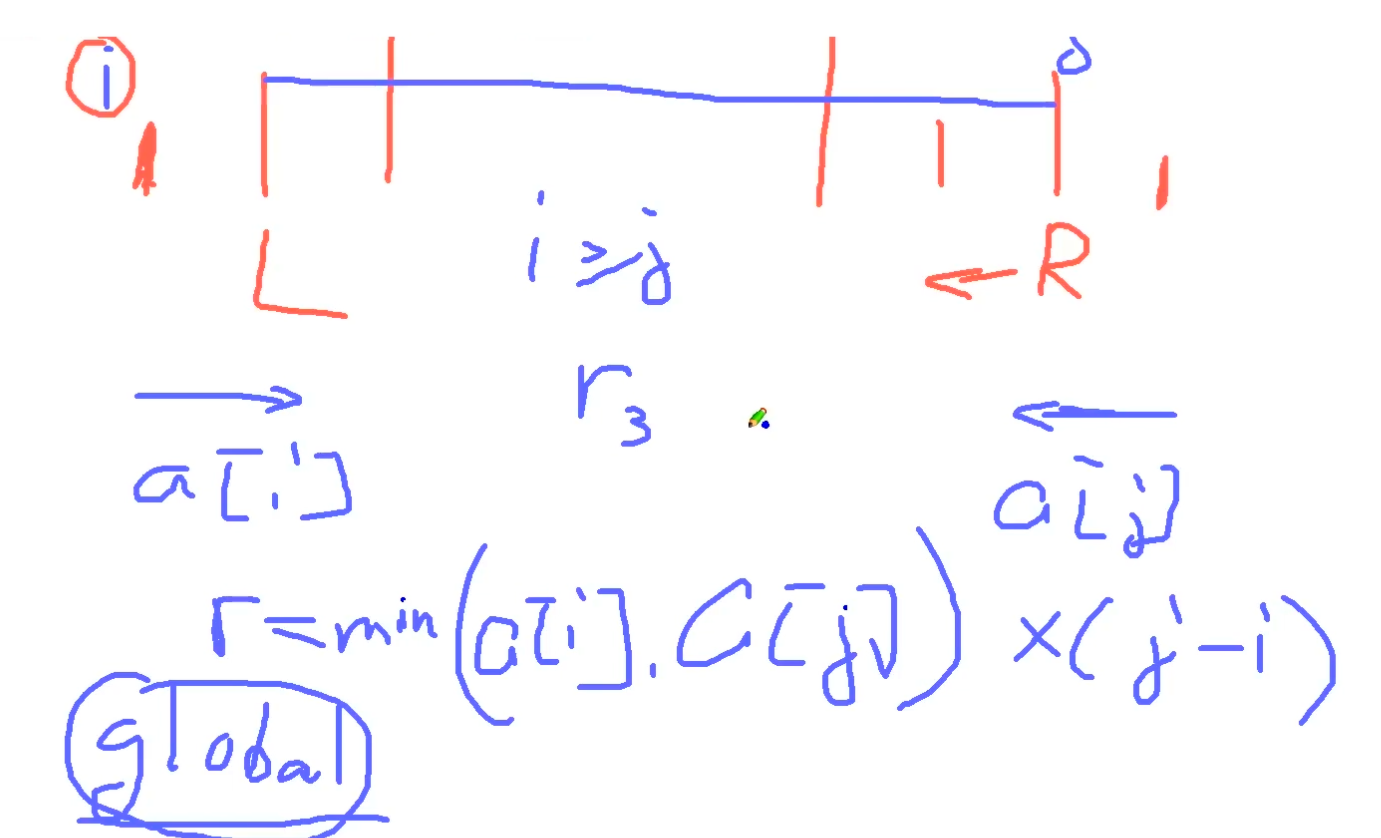 i j
i ≥ j
L R
r3
a[i] a[j]
r = min(a[i], a[j]) × (j - i)
global